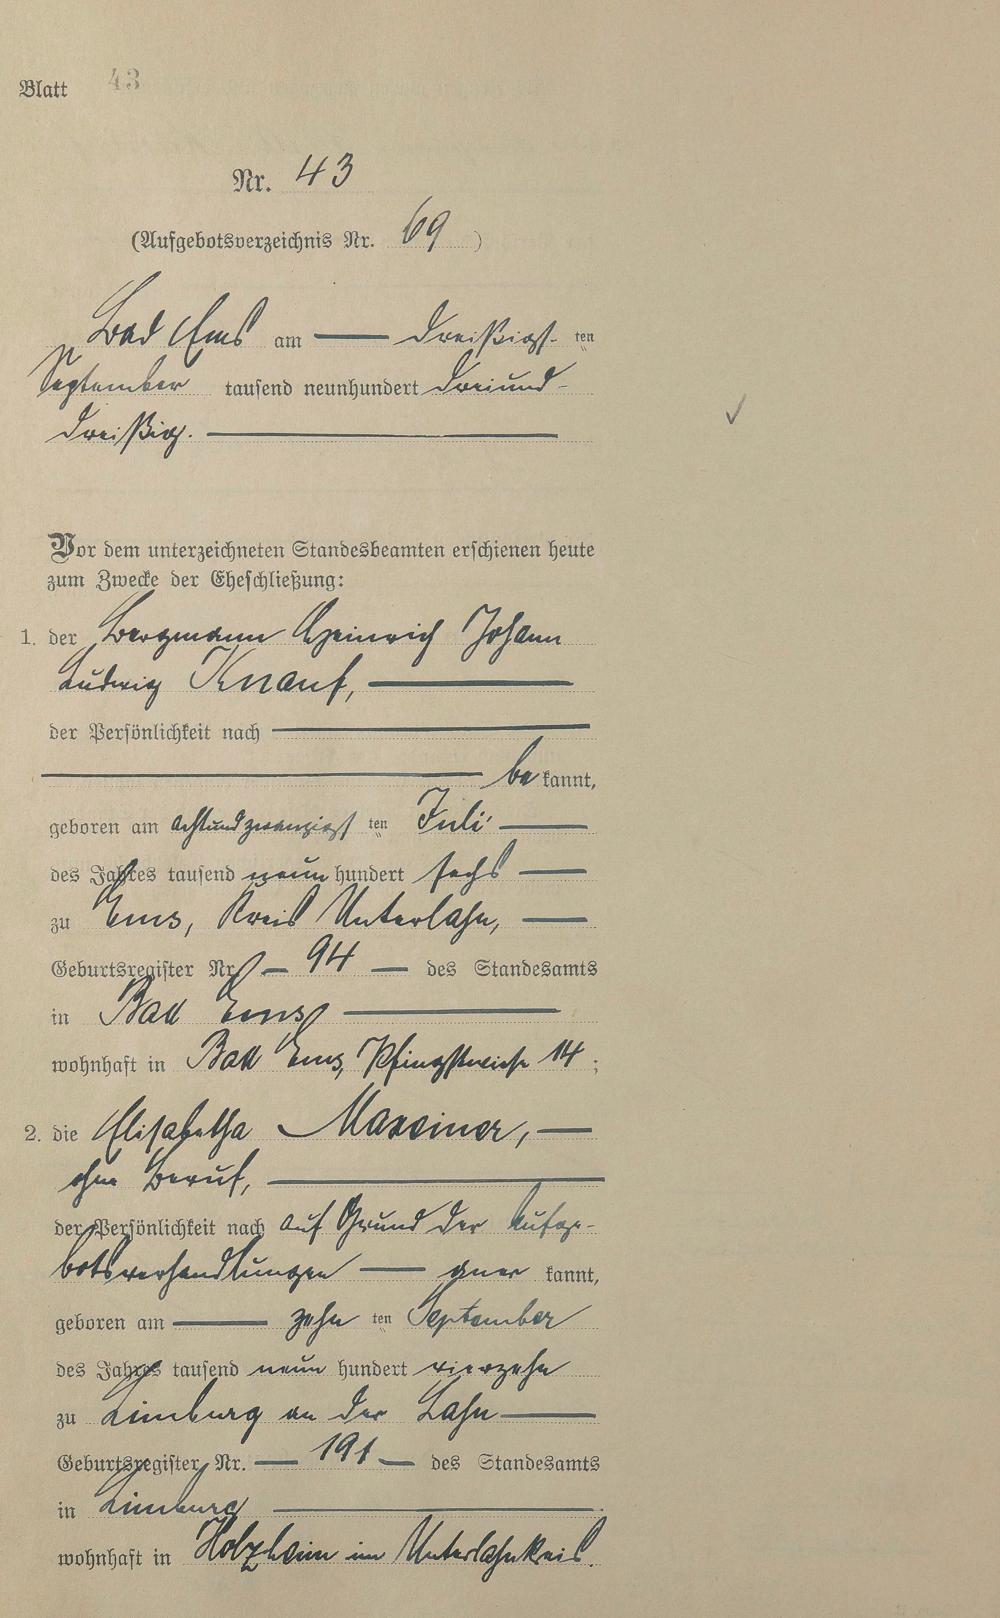 Blatt 43
Nr. 43
(Aufgebotsverzeichnis Nr. 69)
Bad Ems am dreißigst ten
September tausend neunhundert dreiund-
dreißig.
Vor dem unterzeichneten Standesbeamten erschienen heute
zum Zwecke der Eheschließung:
1. der Bergmann Heinrich Johann
Ludwig Knauf,
der Persönlichkeit nach
be kannt,
geboren am achtundzwanzigst ten Juli
des Jahres tausend neun hundert sechs
zu Ems, Kreis Unterlahn,
Geburtsregister Nr. 94 des Standesamts
in Bad Ems
wohnhaft in Bad Ems, Pfingstwiese 14;
2. die Elisabetha Maxeiner,
ohne Beruf,
der Persönlichkeit nach auf Grund der Aufge-
botsverhandlungen aner kannt,
geboren am zehn ten September
des Jahres tausend neun hundert vierzehn
zu Limburg an der Lahn
Geburtsregister Nr. 191 des Standesamts
in Limburg
wohnhaft in Holzheim im Unterlahnkreis.